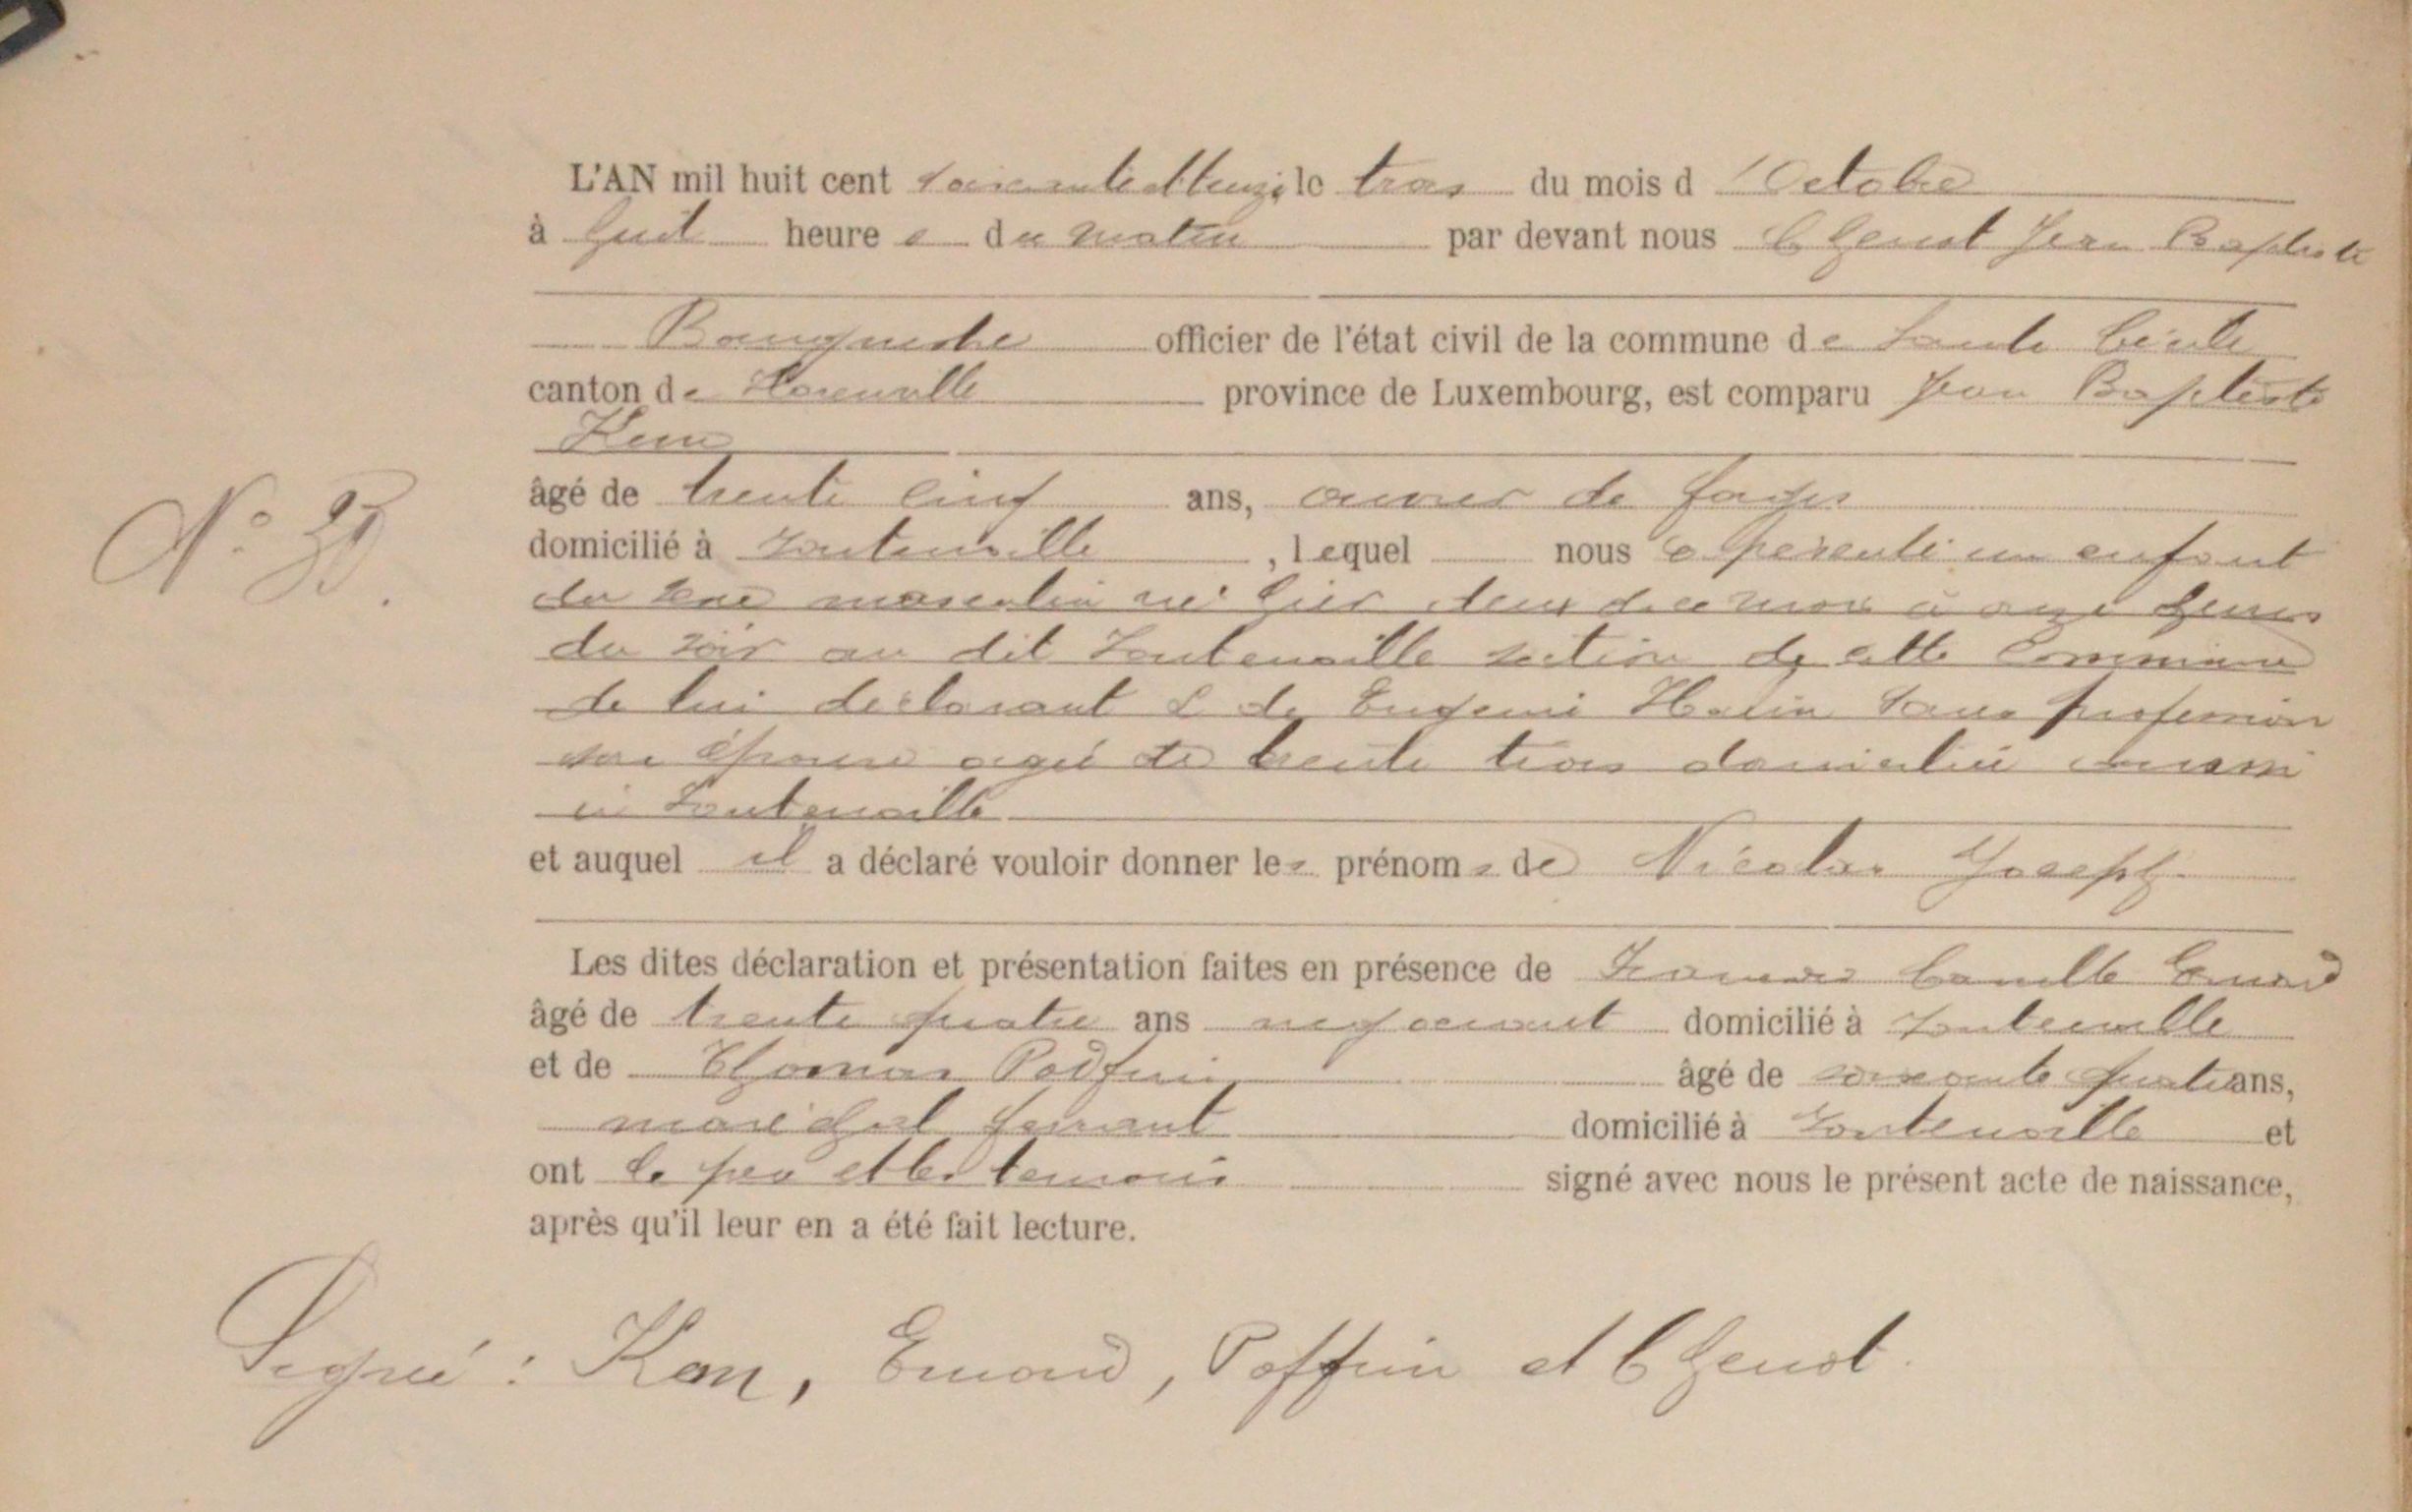 L'AN mil huit cent soixante et treize le trois du mois d'Octobre
à huit heure s du matin par devant nous Chenot Jean Baptiste
Bourgmestre officier de l'état civil de la commune de Sainte Cécile
canton de Florenville province de Luxembourg, est comparu Jean Baptiste
âgé de trente cinq ans, ouvrier de forges
domicilié à Fontenoille, lequel nous a présenté un enfant
du sexe masculin né hier deux de ce mois à onze heures
du soir au dit Fontenoille section de cette Commune
de lui déclarant & de Eugenie sans profession
son épouse agée de trente trois domiciliée aussi
à Fontenoille
et auquel il a déclaré vouloir donner les prénoms de Nicolas Joseph
Les dites déclaration et présentation faites en présence de Camille Emond
âgé de trente quatre ans negociant domicilié à Fontenoille
et de Thomas âgé de soixante quatre ans,
maréchal ferrant domicilié à Fontenoille et
ont le père et les temoins signé avec nous le présent acte de naissance,
après qu'il leur en a été fait lecture.
Signé : Emond, Poffin et Chenot.